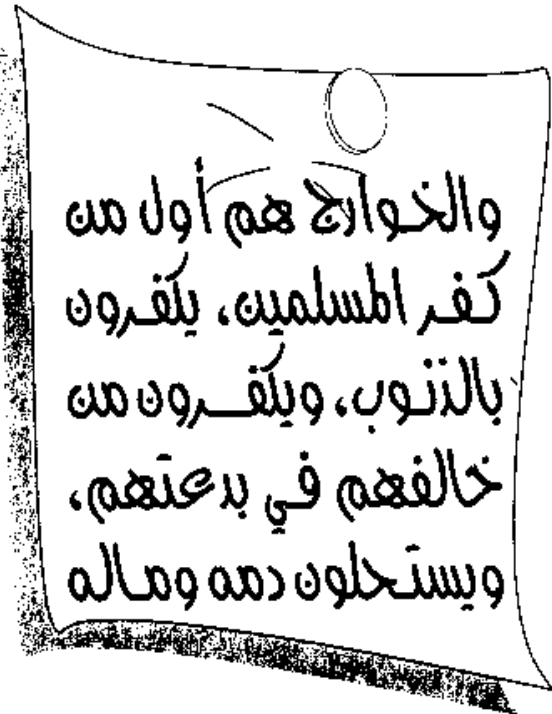 والخوارج هم أول من
كفر المسلمين، يكفرون
بالذنوب، ويكفرون من
خالفهم في بدعتهم،
ويستحلون دمه وماله